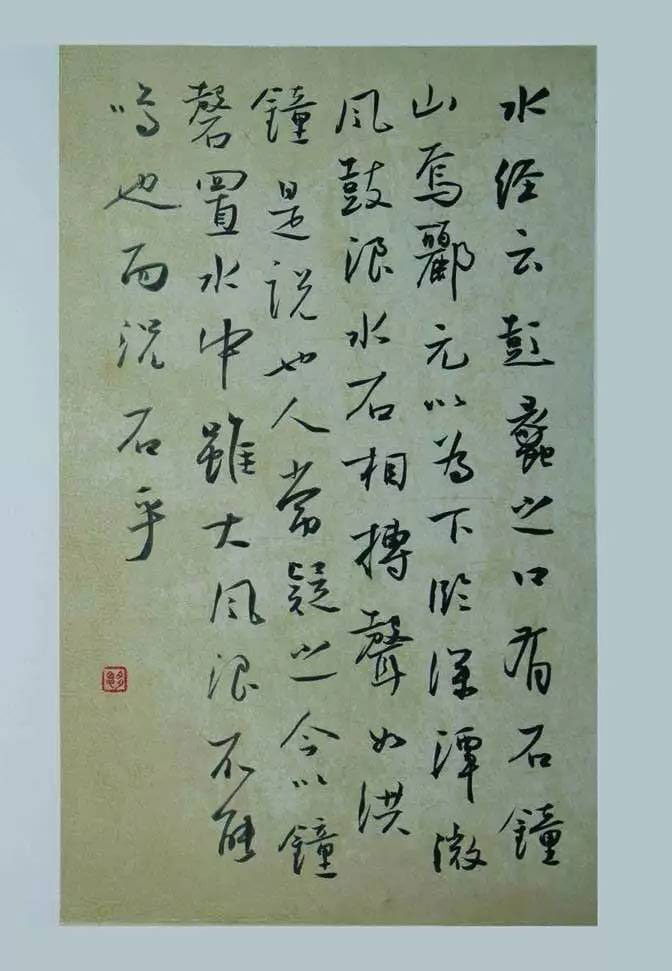 水经云彭蠡之口有石鐘
山焉酈元以為下临深潭微
风鼓浪水石相搏聲如洪
鐘是说也人常疑之今以鐘
磬置水中雖大风浪不能
鸣也而况石乎